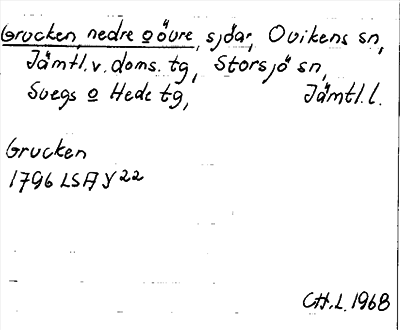 Grucken, nedre o övre, sjöar, Ovikens sn,
Jämtl.v.doms.tg, Storsjö sn,
Svegs o Hede tg, Jämtl.l.
Grucken
1796 LSA Y 22
CH.L. 1968